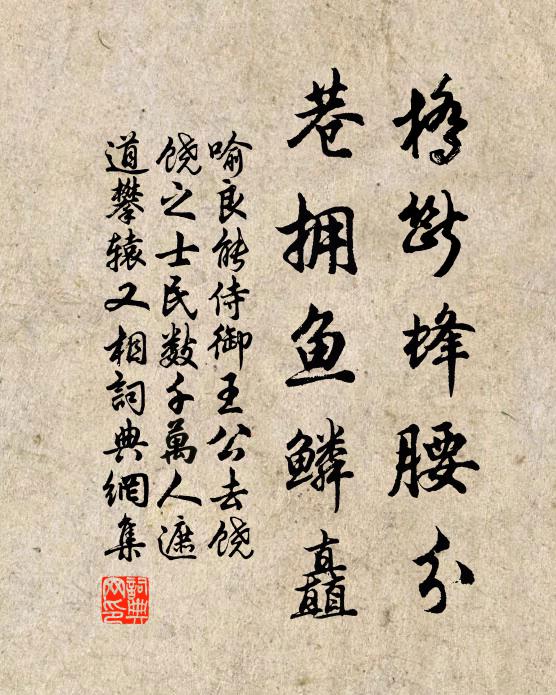 橋斷蜂腰分
巷拥鱼鳞矗
喻良能侍御王公去饶
饶之士民数千万人遮
道攀辕又相詞典網集
詞典網印